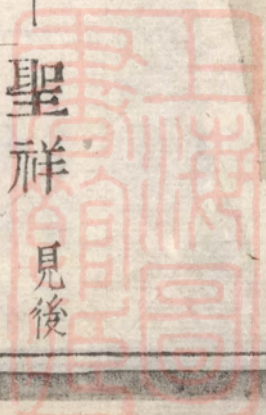 聖祥 見後
上海圖
書館藏